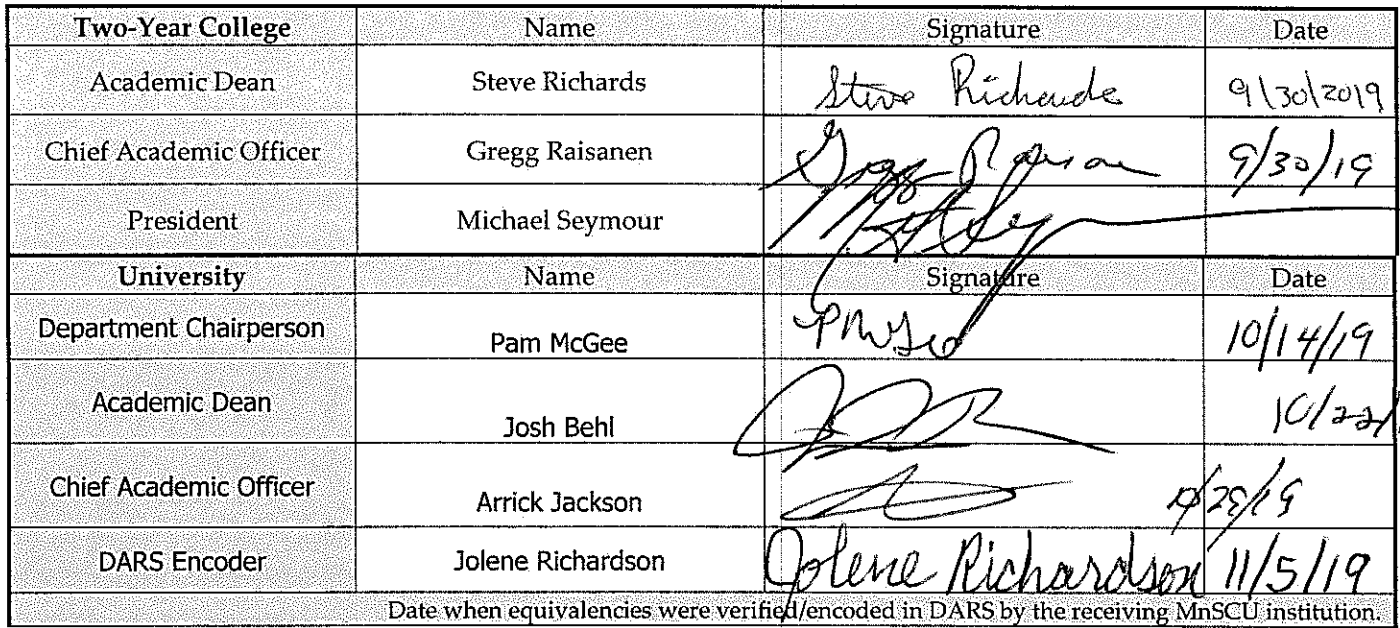 Two-Year College Name Signature Date
Academic Dean Steve Richards Steve Richards 9/30/2019
Chief Academic Officer Gregg Raisanen Gregg Raisanen 9/30/19
President Michael Seymour
University Name Signature Date
Department Chairperson Pam McGee PMcGee 10/14/19
Academic Dean Josh Behl 10/22/
Chief Academic Officer Arrick Jackson 10/29/19
DARS Encoder Jolene Richardson Jolene Richardson 11/5/19
Date when equivalencies were verified/encoded in DARS by the receiving MnSCU institution.